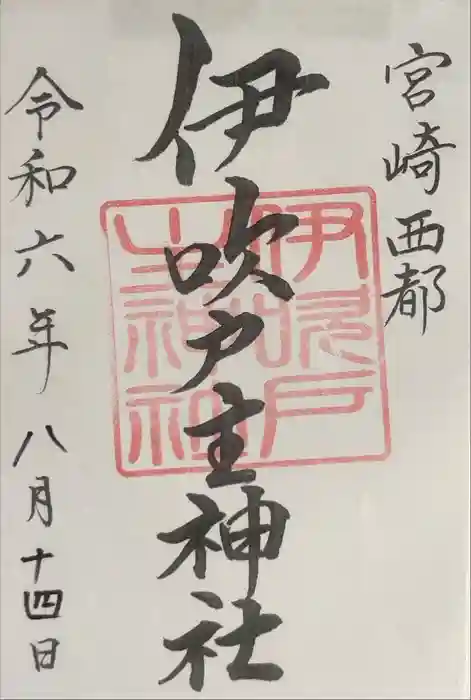 宮崎西都
伊吹戸主神社
伊吹戸
主神社
令和六年八月十四日